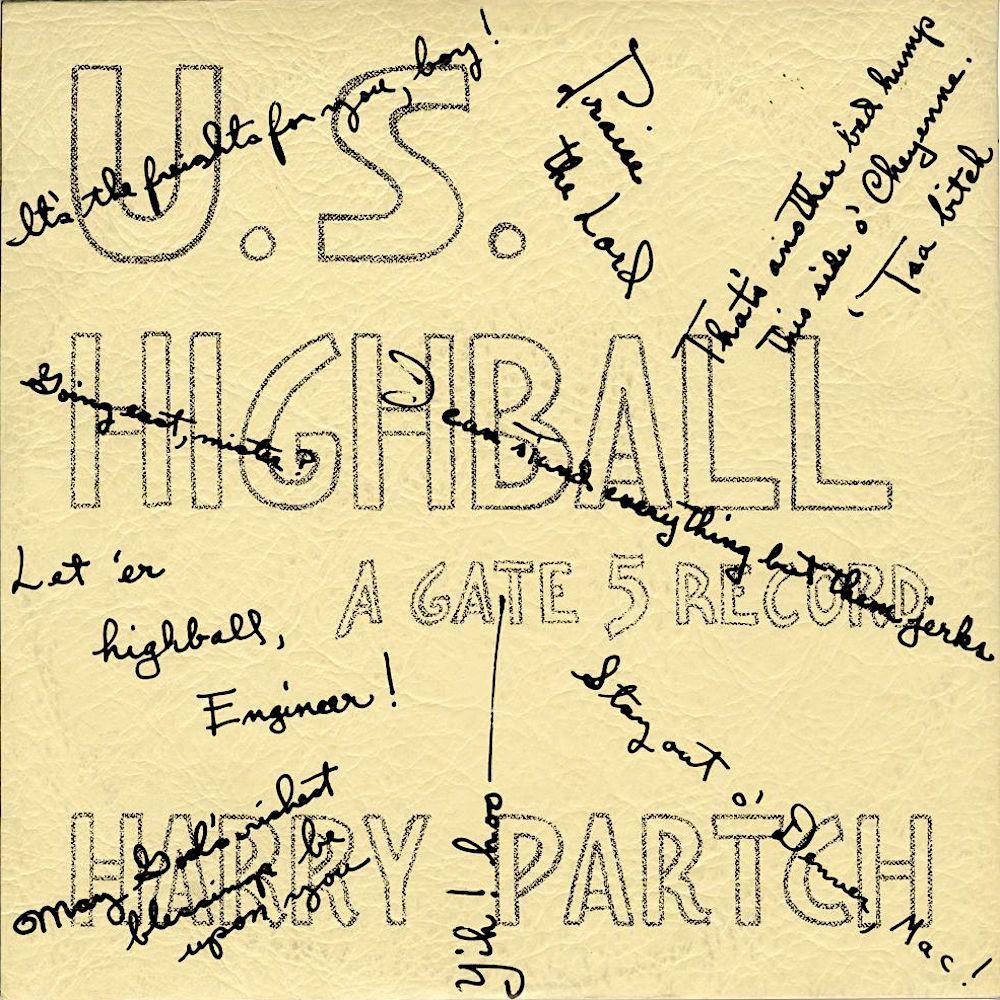 U.S.
HIGHBALL
A GATE 5 RECORD
HARRY PARTCH
It's the freights for you, boy!
Praise
the Lord
That's another bad hump
this side o' Cheyenne.
'Tsa bitch
Going east, mister?
I can stand everything but them jerks
Let 'er
highball,
Engineer!
Stay out
o' Denver, Mac!
May God's richest
blessings be
upon you
Yih! hoo